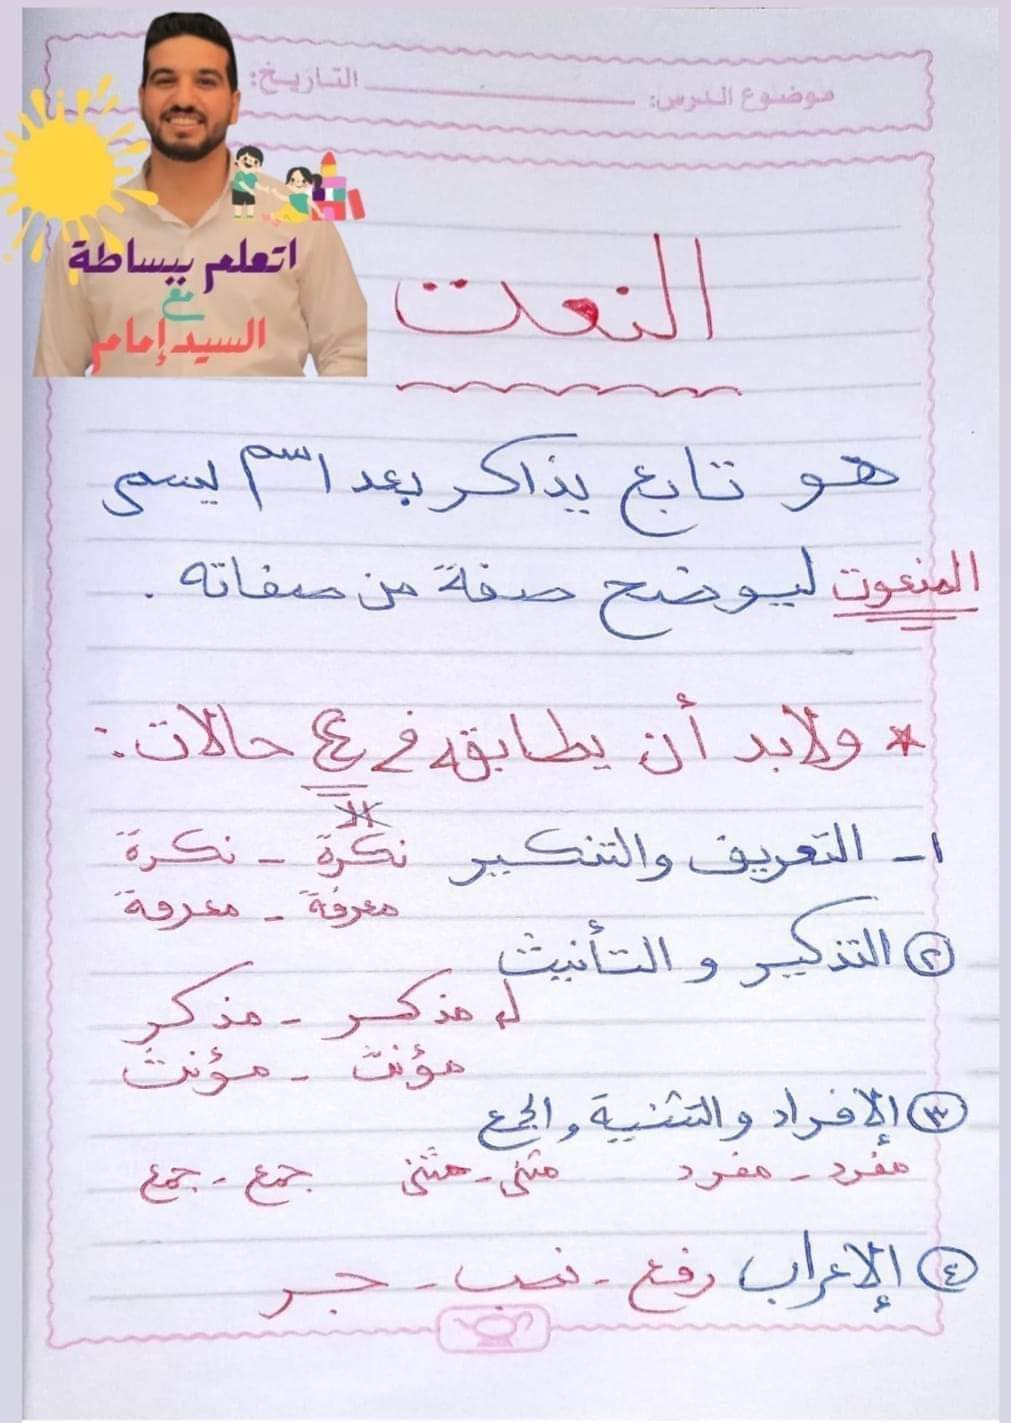 موضوع الدرس: التاريخ:
اتعلم ببساطة
مع
السيد إمام
النعت
هو تابع يذاكر بعد اسم يسمى
المنعوت ليوضح صفة من صفاته .
* ولابد أن يطابقه في ٤ حالات :
١- التعريف والتنكير نكرة - نكرة
معرفة - معرفة
٢ التذكير و التأنيث
مذكر - مذكر
مؤنث - مؤنث
٣ الإفراد والتثنية والجمع
مفرد - مفرد مثنى - مثنى جمع - جمع
٤ الإعراب رفع - نصب - جر